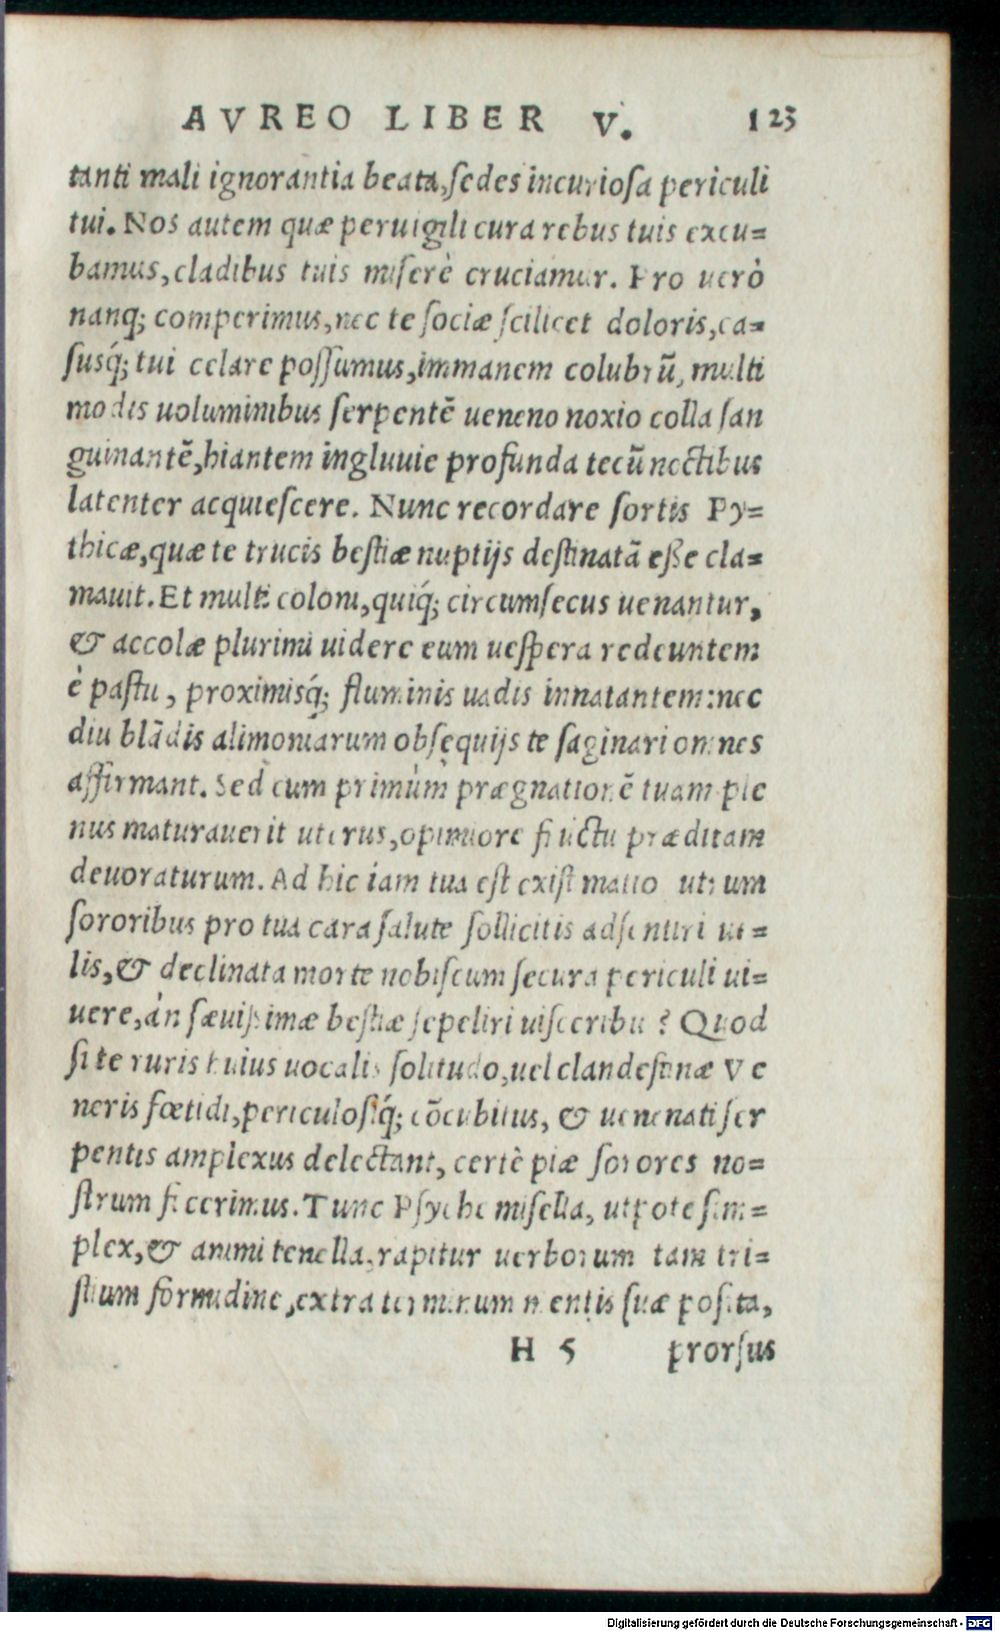 AVREO LIBER V. 123
tanti mali ignorantia beata,ſedes incurioſa periculi
tui. Nos autem quæ peruigili cura rebus tuis excu=
bamus,cladibus tuis miſerè cruciamur. Pro uerò
nanq; comperimus,nec te ſociæ ſcilicet doloris,ca=
suſq́; tui celare poſſumus,immanem colubrũ, multi
modis uoluminibus ſerpentẽ ueneno noxio colla ſan
guinantẽ,hiantem ingluuie profunda tecũ noctibus
latenter acquieſcere. Nunc recordare ſortis Py=
thicæ,quæ te trucis beſtiæ nuptijs deſtinatã eße cla=
mauit. Et multi coloni,quiq́; circumſecus uenantur,
& accolæ plurimi uidere eum ueſpera redeuntem
è paſtu, proximisq́; fluminis uadis innatantem:nec
diu blãdis alimoniarum obſequijs te ſaginari omnes
affirmant. Sed cum primùm prægnationẽ tuam ple
nus maturauerit uterus,opimiore fructu præditam
deuoraturum. Ad hic iam tua eſt existimatio utrum
ſororibus pro tua cara ſalute ſollicitis adſentiri ue=
lis,& declinata morte nobiſcum ſecura periculi ui=
uere,àn ſæuißimæ beſtiæ ſepeliri uiſceribus? Quod
ſi te ruris huius uocalis ſolitudo,uel clandeſtinæ Ve
neris fœtidi,periculoſiq́; cõcubitus, & uenenati ſer
pentis amplexus delectant, certè piæ ſorores no=
ſtrum fecerimus. Tunc Pſyche miſella, utpote ſim=
plex,& animi tenella,rapitur uerborum tam tri=
ſtium formidine,extra terminum mentis ſuæ poſita,
H 5 prorſus
Digitalisierung gefördert durch die Deutsche Forschungsgemeinschaft - DFG